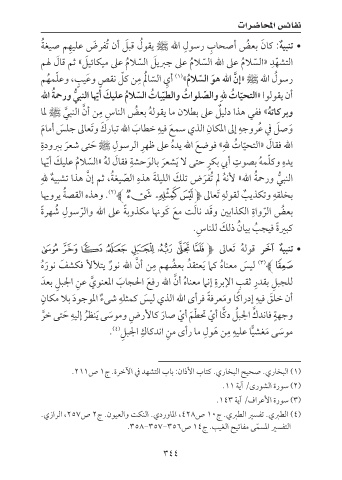 نفائس المحاضرات
• تنبيهٌ: كانَ بعضُ أصحابِ رسولِ الله ﷺ يقولُ قبلَ أن تُفرضَ عليهِم صيغةُ
التشهّدِ «السّلامُ على الله السّلامُ على جبريلَ السّلامُ على ميكائيلَ» ثم قالَ لهم
رسولُ الله ﷺ «إنَّ الله هوَ السّلامُ»(١) أي السَّالمُ مِن كلّ نقصٍ وعَيبٍ، وعلَّمهُم
أن يقولوا «التحيّاتُ للهِ والصّلواتُ والطيّباتُ السّلامُ عليكَ أيّها النبيُّ ورحمةُ الله
وبركاتُهُ» ففي هذا دليلٌ على بطلان ما يقولُهُ بعضُ الناسِ مِن أنَّ النبيَّ ﷺ لما
وَصلَ في عُروجهِ إلى المكانِ الذي سمعَ فيهِ خطابَ الله تباركَ وتَعالى جلسَ أمامَ
الله فقالَ «التحيّاتُ للهِ» فوضعَ الله يدهُ على ظهرِ الرسولِ ﷺ حتى شعرَ ببرودةِ
يدهِ وكلَّمهُ بصوتِ أبي بكرٍ حتى لا يَشعرَ بالوَحشةِ فقالَ لهُ «السّلامُ عليكَ أيّها
النبيُّ ورحمةُ الله» لأنهُ لم تُفرَض تلكَ الليلةَ هذهِ الصّيغةُ، ثم إنَّ هذا تشبيهٌ للهِ
بخلقِهِ وتكذيبٌ لقولهِ تَعالى ﴿ لَيْسَ كَمِثْلِهِۦ شَىْءٌ ﴾(٢). وهذه القصةُ يرويها
بعضُ الرّواةِ الكذابين وقَد نالَت معَ كَونها مكذوبةً على الله والرّسولِ شُهرةً
كبيرةً فيجبُ بيانُ ذلكَ للناسِ.
• تنبيهٌ آخر قولُهُ تَعالى ﴿ فَلَمَّا تَجَلَّىٰ رَبُّهُۥ لِلْجَبَلِ جَعَلَهُۥ دَكًّا وَخَرَّ مُوسَىٰ
صَعِقًا ﴾(٣) ليسَ معناهُ كما يَعتقدُ بعضُهم مِن أنَّ الله نورٌ يتلألأُ فكشفَ نورَهُ
للجبلِ بقدرِ ثقبِ الإبرةِ إنما معناهُ أنَّ الله رفعَ الحجابَ المعنويَّ عنِ الجبلِ بعدَ
أن خلقَ فيهِ إدراكًا ومَعرفةً فرأى الله الذي ليسَ كمثلهِ شىءٌ الموجودَ بلا مكانٍ
وجهةٍ فاندكَّ الجبلُ دكًّا أيْ تحطّمَ أيْ صارَ كالأرضِ وموسَى يَنظرُ إليهِ حتى خرَّ
موسَى مَغشيًّا عليهِ مِن هَولِ ما رأى منِ اندكاكِ الجبلِ(٤).
(١) البخاري. صحيح البخاري. كتاب الأذان: باب التشهد في الآخرة. ج١ ص٢١١.
(٢) سورة الشورى/ آية ١١.
(٣) سورة الأعراف/ آية ١٤٣.
(٤) الطبري. تفسير الطبري. ج١٠ ص٤٢٨، الماوردي. النكت والعيون. ج٢ ص٢٥٧، الرازي.
التفسير المسمّى مفاتيح الغيب. ج١٤ ص٣٥٦-٣٥٧-٣٥٨.
٣٤٤